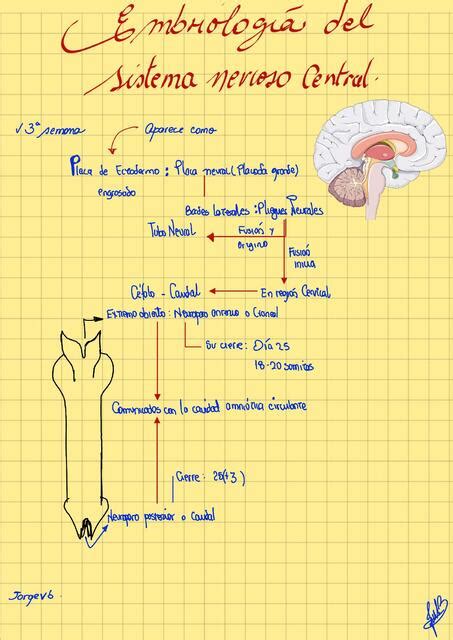 Embriología del
sistema nervioso Central.
√ 3ª semana
Aparece como
Placa de Ectodermo : Placa neural (Placoda grande)
engrosado
Bordes laterales : Pliegues Neurales
Tubo Neural
Fusión y
origino
Fusión
inicia
Céfalo - Caudal
En región Cervical
Extremo abierto : Neuroporo anterior o Craneal
Su cierre : Día 25
18-20 somitas
Comunicados con la cavidad amniótica circulante
Cierre : 25(+3)
Neuroporo posterior o caudal
Jorgevb.